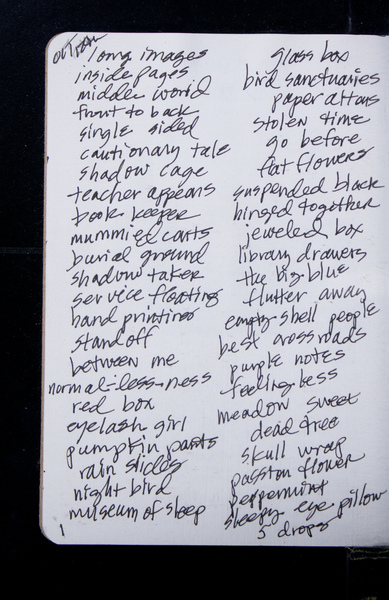 long images
inside pages
middle world
front to back
single sided
cautionary tale
shadow cage
teacher appears
book keeper
mummied
burial ground
shadow taker
service floating
hand printing
stand off
between me
normal-less-ness
red box
eyelash girl
pumpkin pants
rain slides
night bird
museum of sleep
1
glass box
bird sanctuaries
paper
stolen time
go before
flat flowers
suspended black
hinged together
jeweled box
library drawers
the big blue
flutter away
empty shell people
best crossroads
purple notes
feeling less
meadow sweet
dead tree
skull wrap
passion flower
peppermint
sleepy eye pillow
5 drops